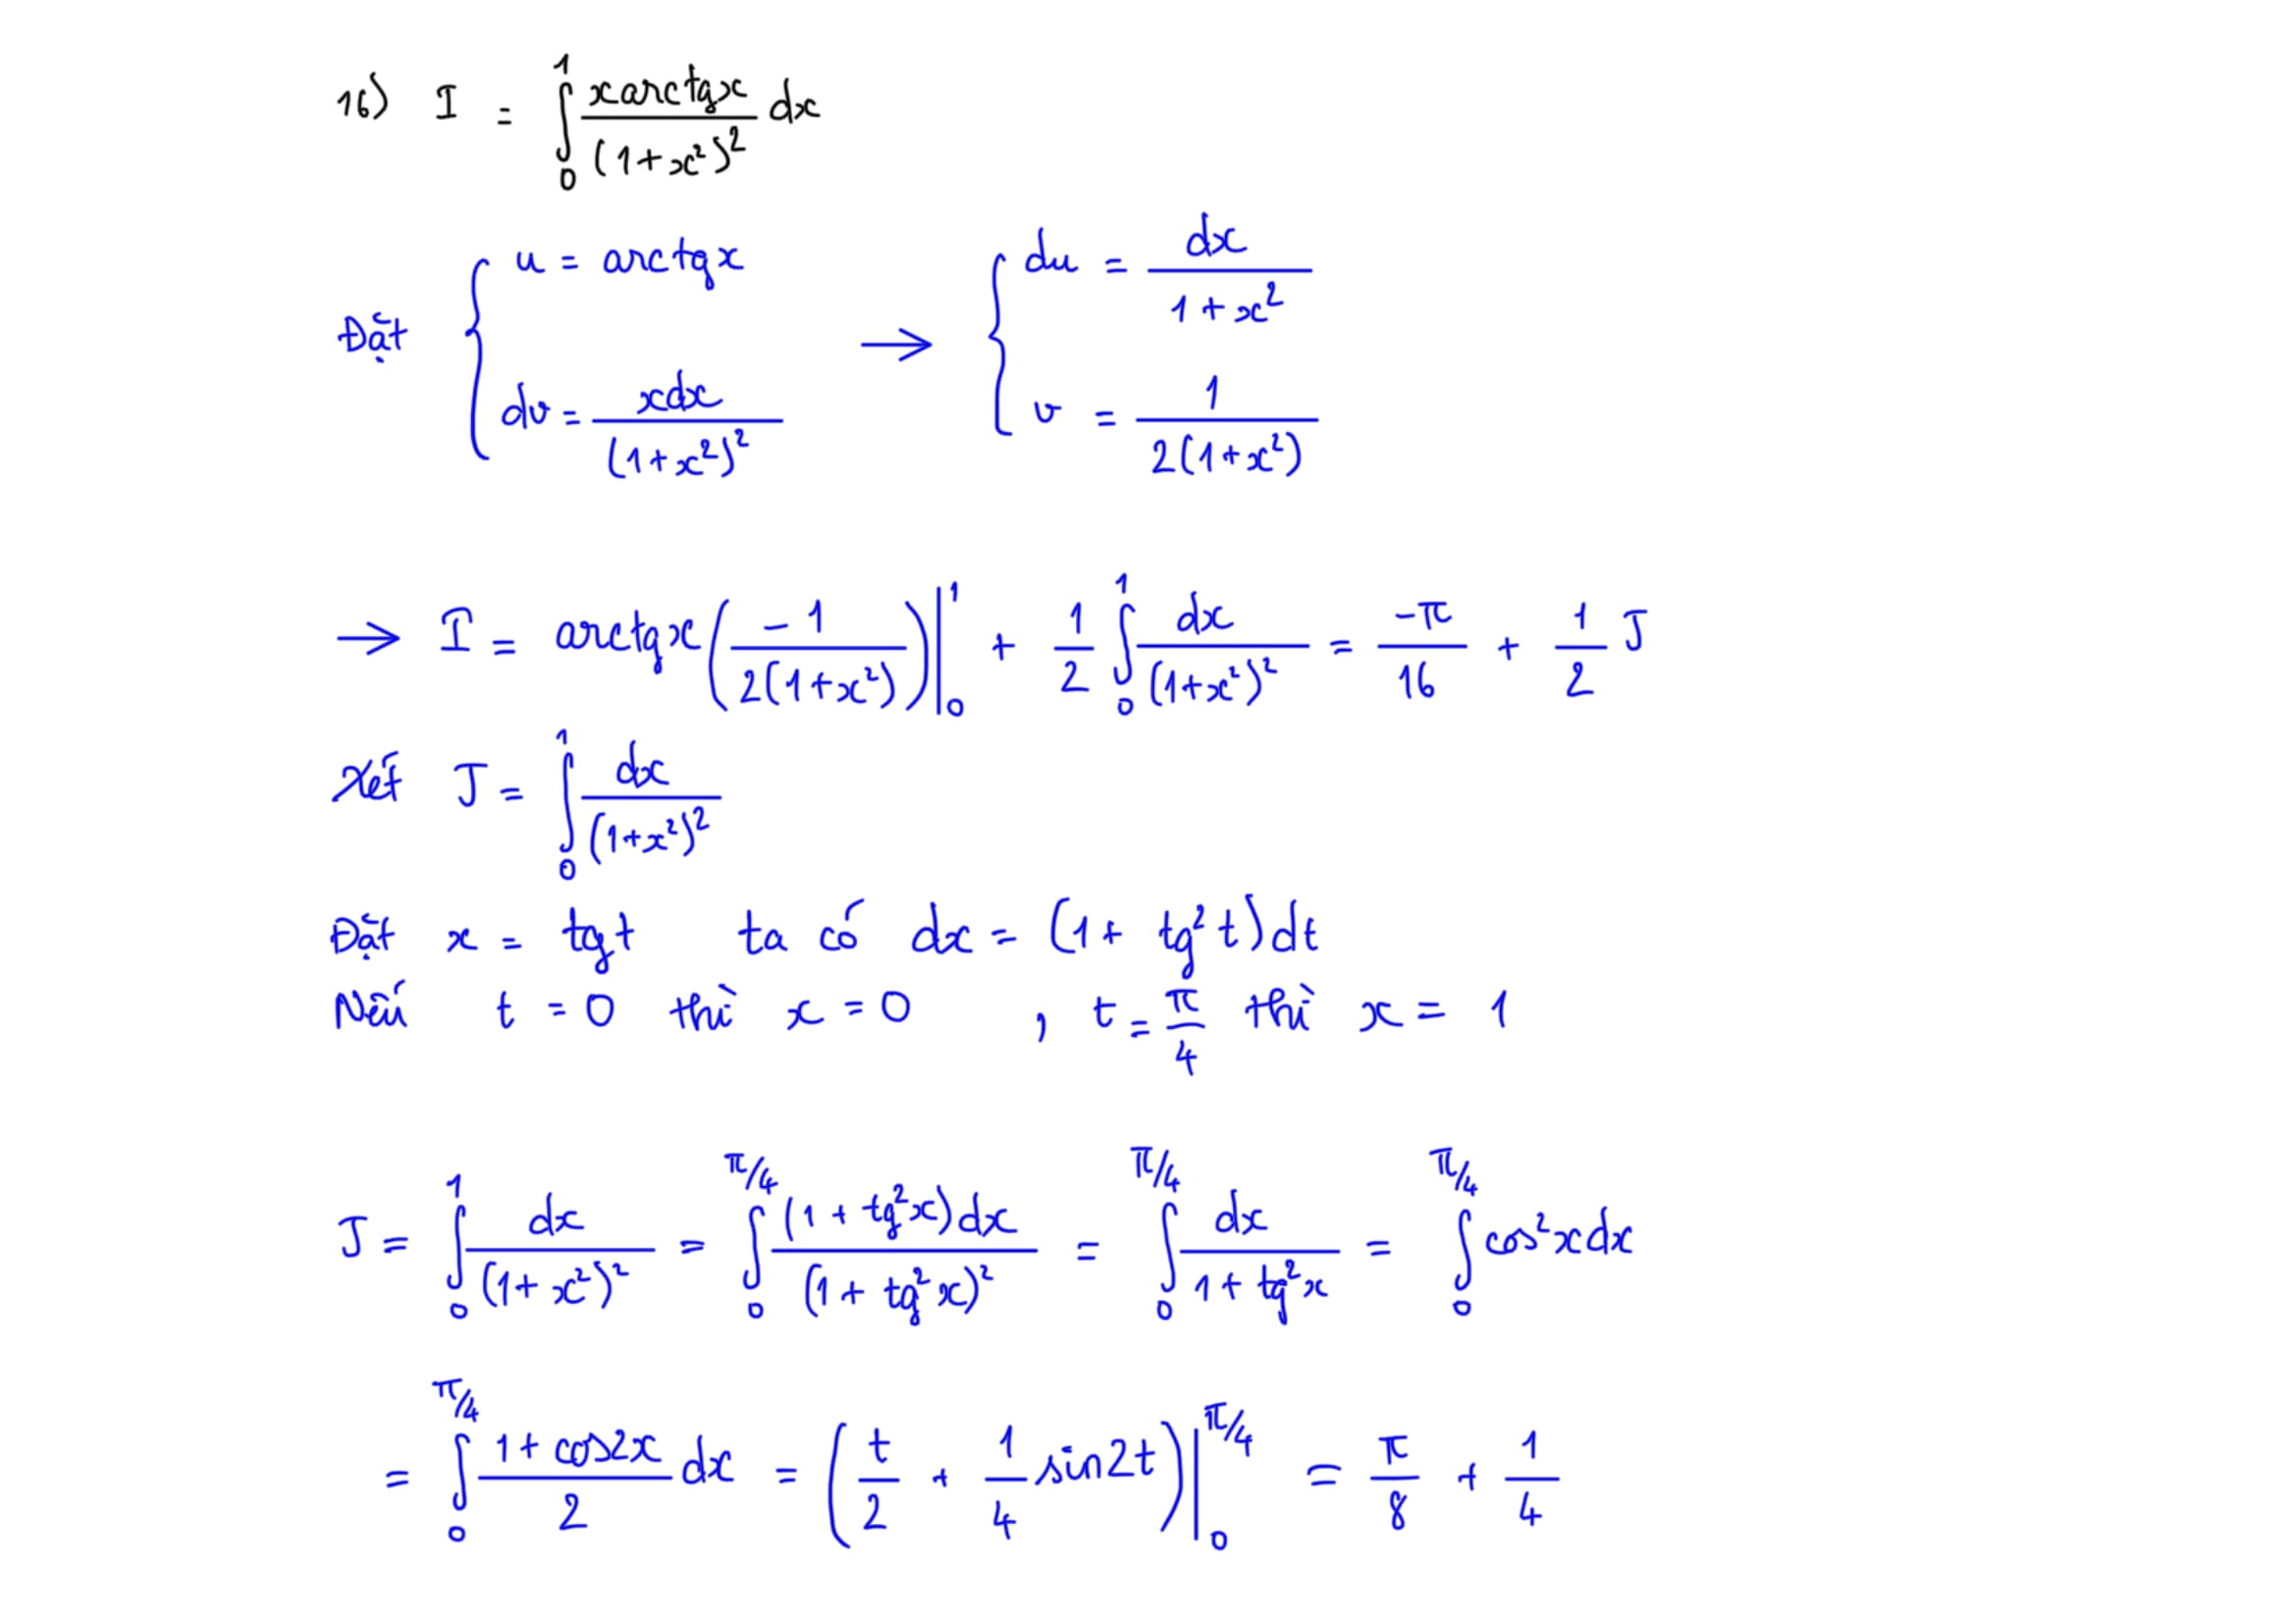 16) I = ∫₀¹ \frac{x arctgx}{(1+x²)²} dx
Đặt { u = arctgx ; dv = \frac{xdx}{(1+x²)²} → { du = \frac{dx}{1+x²} ; v = \frac{1}{2(1+x²)}
→ I = arctgx (\frac{-1}{2(1+x²)}) |₀¹ + \frac{1}{2} ∫₀¹ \frac{dx}{(1+x²)²} = \frac{-π}{16} + \frac{1}{2} J
Xét J = ∫₀¹ \frac{dx}{(1+x²)²}
Đặt x = tgt ta có dx = (1+ tg²t)dt
Nếu t = 0 thì x = 0 , t = \frac{π}{4} thì x = 1
J = ∫₀¹ \frac{dx}{(1+x²)²} = ∫₀^{π/4} \frac{(1+tg²x)dx}{(1+tg²x)²} = ∫₀^{π/4} \frac{dx}{1+tg²x} = ∫₀^{π/4} cos²xdx
= ∫₀^{π/4} \frac{1+cos2x}{2} dx = (\frac{t}{2} + \frac{1}{4} sin2t) |₀^{π/4} = \frac{π}{8} + \frac{1}{4}